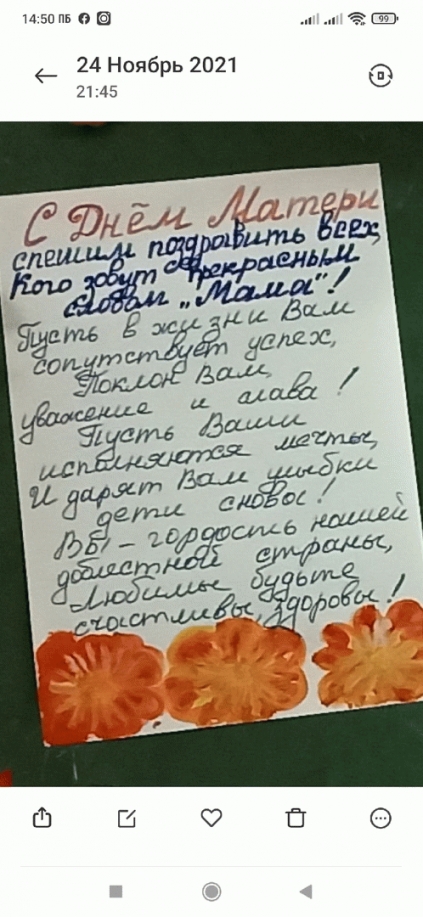 14:50 ПБ
99
24 Ноябрь 2021
21:45
С Днём Матери
спешим поздравить всех,
Кого зовут прекрасным
словом „Мама"!
Пусть в жизни Вам
сопутствует успех,
Поклон Вам,
уважение и слава!
Пусть Ваши
исполняются мечты,
И дарят Вам улыбки
дети снова!
ВЫ - гордость нашей
доблестной страны,
Любимы будьте
счастливы, здоровы!